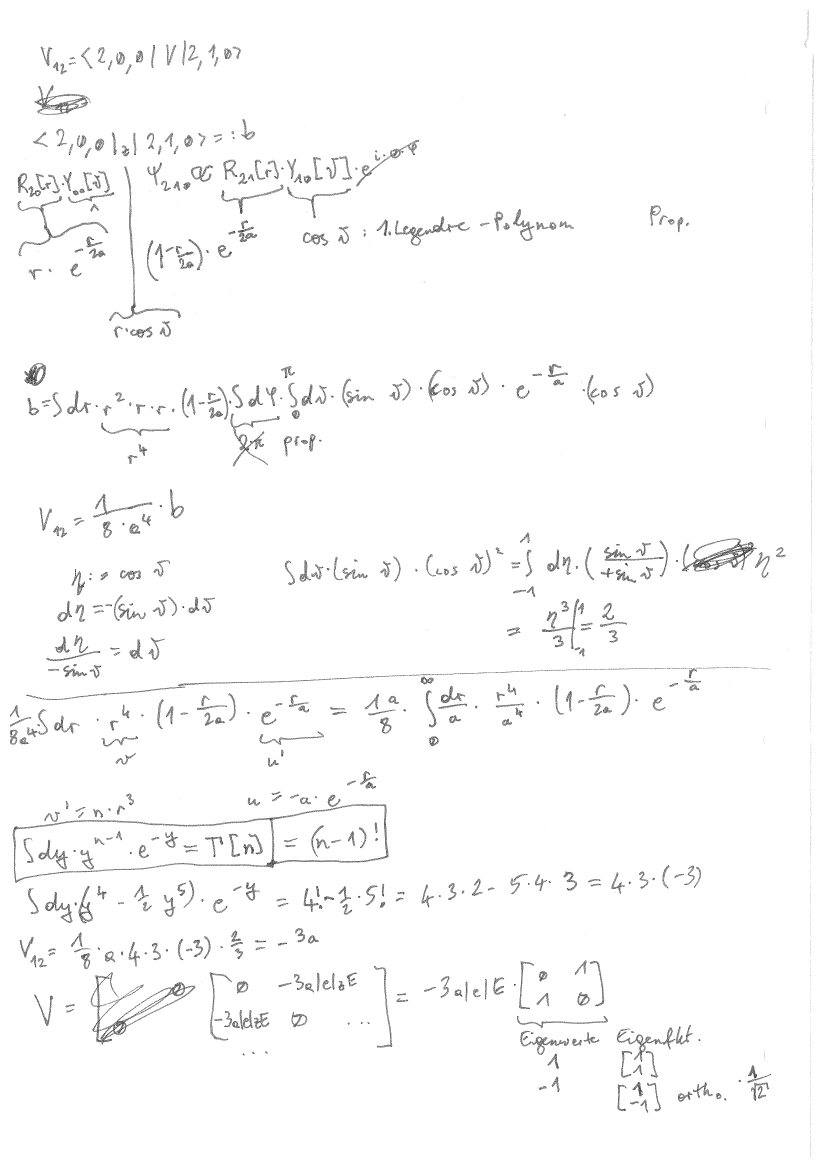 V₁₂ = <2,0,0 | V | 2,1,0>
<2,0,0 |z| 2,1,0> =: b
R₂₀[r]·Y₀₀[ϑ] | Ψ₂₁₀ ∝ R₂₁[r]·Y₁₀[ϑ]·e^{i·0·φ}
1
r · e^{-r/2a} | (1-r/2a) · e^{-r/2a} cos ϑ : 1. Legendre-Polynom Prop.
r·cos ϑ
b = ∫dr · r²·r·r·(1-r/2a)·∫dφ·∫₀^π dϑ·(sin ϑ)·(cos ϑ)·e^{-r/a}·(cos ϑ)
r⁴ 2·π prop.
V₁₂ = 1/(8·a⁴) · b
η := cos ϑ ∫dϑ·(sin ϑ)·(cos ϑ)² = ∫₋₁¹ dη·(sin ϑ/+sin ϑ)·η²
dη = -(sin ϑ)·dϑ = η³/3 |₋₁¹ = 2/3
dη/(-sin ϑ) = dϑ
1/8a⁴ ∫dr · r⁴ · (1-r/2a) · e^{-r/a} = 1a/8 · ∫₀^∞ dr/a · r⁴/a⁴ · (1-r/2a) · e^{-r/a}
v u'
v' = n·r³ u = -a·e^{-r/a}
∫dy·y^{n-1}·e^{-y} = Γ[n] = (n-1)!
∫dy·(y⁴ - 1/2 y⁵)·e^{-y} = 4! - 1/2·5! = 4·3·2 - 5·4·3 = 4·3·(-3)
V₁₂ = 1/8·a·4·3·(-3)·2/3 = -3a
V = [0 -3a|e|zE
-3a|e|zE 0 ...
...] = -3a|e|E · [0 1
1 0]
Eigenwerte Eigenfkt.
1 [1 1]
-1 [1 -1] ortho. · 1/√2